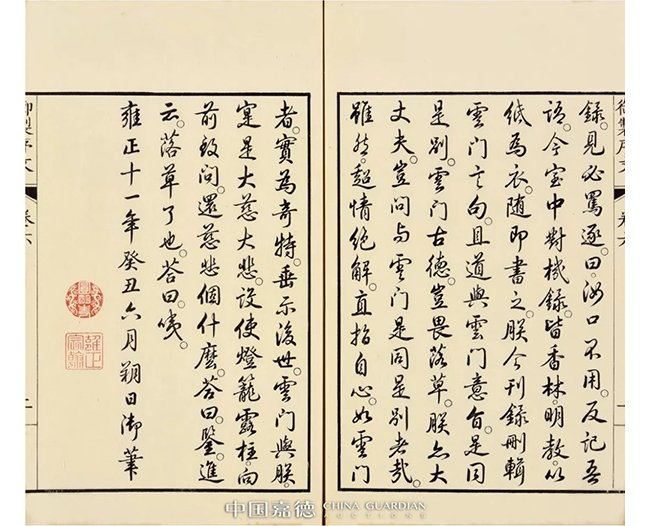 錄。見必罵逐。曰。汝口不用。反記吾
語。今室中對機錄。皆香林明教。以
紙為衣。隨即書之。朕今刊錄刪輯
雲门言句。且道與雲门意旨。是同
是別。雲门古德。豈畏落草。朕亦大
丈夫。豈問与雲门是同是別者哉。
雖然。超情絕解。直指自心。如雲门
御製序文 卷六
者。實為奇特。垂示後世。雲门與朕。
寔是大慈大悲。設使燈籠露柱。向
前致問。還慈悲個什麼。答曰。鑒。進
云。落草了也。答曰。咦。
雍正十一年癸丑六月朔日御筆
雍正宸翰
御製序文 卷六 二
中国嘉德 CHINA GUARDIAN
AUCTIONS